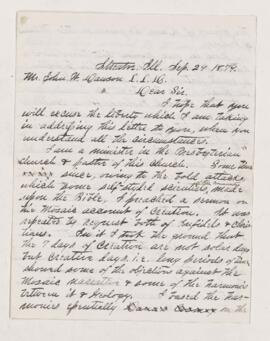 Streator, Ill. Sep. 24 1879.
Mr. John W. Dawson L.L.D.
Dear Sir.
I hope that you
will excuse the liberty which I am taking
in addressing this letter to you, when you
understand all the circumstances.
I am a minister in the Presbyterian
church & pastor of this church. Some time
since, owing to the bold attacks
which some self-styled scientists, made
upon the Bible, I preached a sermon on
the Mosaic account of Creation. It was
repeated by request both of infidels & Chris
tians. In it I took the ground that
the 7 days of Creation are not solar days
but creative days, i.e. long periods of time
showed some of the objections against the
Mosaic narrative & some of the harmonies
between it & Geology. I based the har-
monies on the